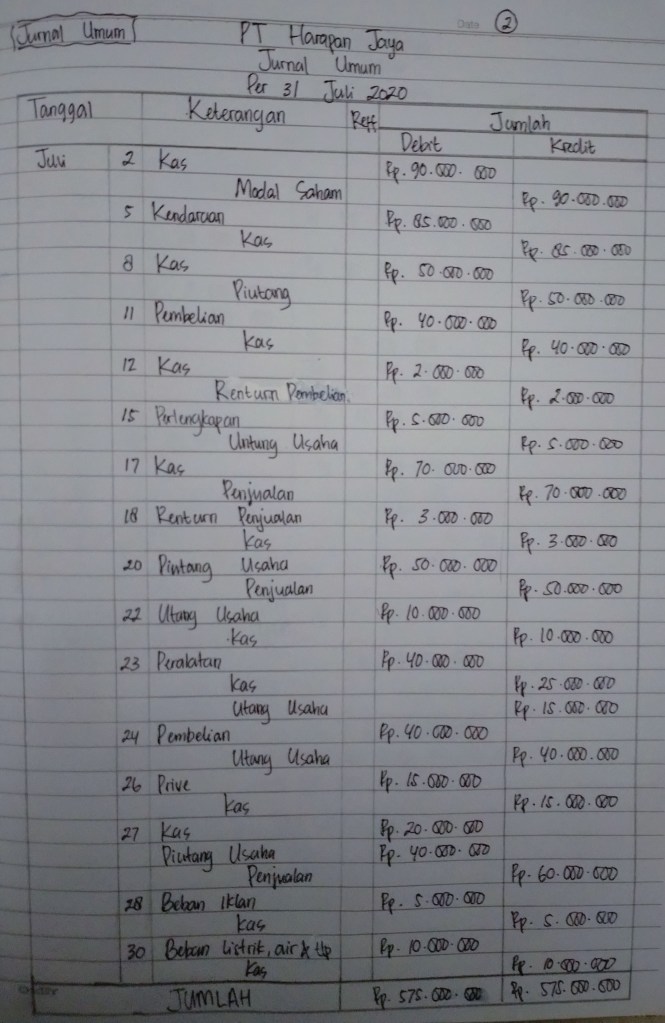 Jurnal Umum
Date
2
PT Harapan Jaya
Jurnal Umum
Per 31 Juli 2020
Tanggal Keterangan Reff Jumlah
Debit Kredit
Juli 2 Kas Rp. 90.000.000
Modal Saham Rp. 90.000.000
5 Kendaraan Rp. 85.000.000
Kas Rp. 85.000.000
8 Kas Rp. 50.000.000
Piutang Rp. 50.000.000
11 Pembelian Rp. 40.000.000
Kas Rp. 40.000.000
12 Kas Rp. 2.000.000
Renturn Pembelian. Rp. 2.000.000
15 Perlengkapan Rp. 5.000.000
Untung Usaha Rp. 5.000.000
17 Kas Rp. 70.000.000
Penjualan Rp. 70.000.000
18 Renturn Penjualan Rp. 3.000.000
Kas Rp. 3.000.000
20 Piutang Usaha Rp. 50.000.000
Penjualan Rp. 50.000.000
22 Utang Usaha Rp. 10.000.000
Kas Rp. 10.000.000
23 Peralatan Rp. 40.000.000
Kas Rp. 25.000.000
Utang Usaha Rp. 15.000.000
24 Pembelian Rp. 40.000.000
Utang Usaha Rp. 40.000.000
26 Prive Rp. 15.000.000
Kas Rp. 15.000.000
27 Kas Rp. 20.000.000
Piutang Usaha Rp. 40.000.000
Penjualan Rp. 60.000.000
28 Beban Iklan Rp. 5.000.000
Kas Rp. 5.000.000
30 Beban Listrik, air & tlp Rp. 10.000.000
Kas Rp. 10.000.000
JUMLAH Rp. 575.000.000 Rp. 575.000.000